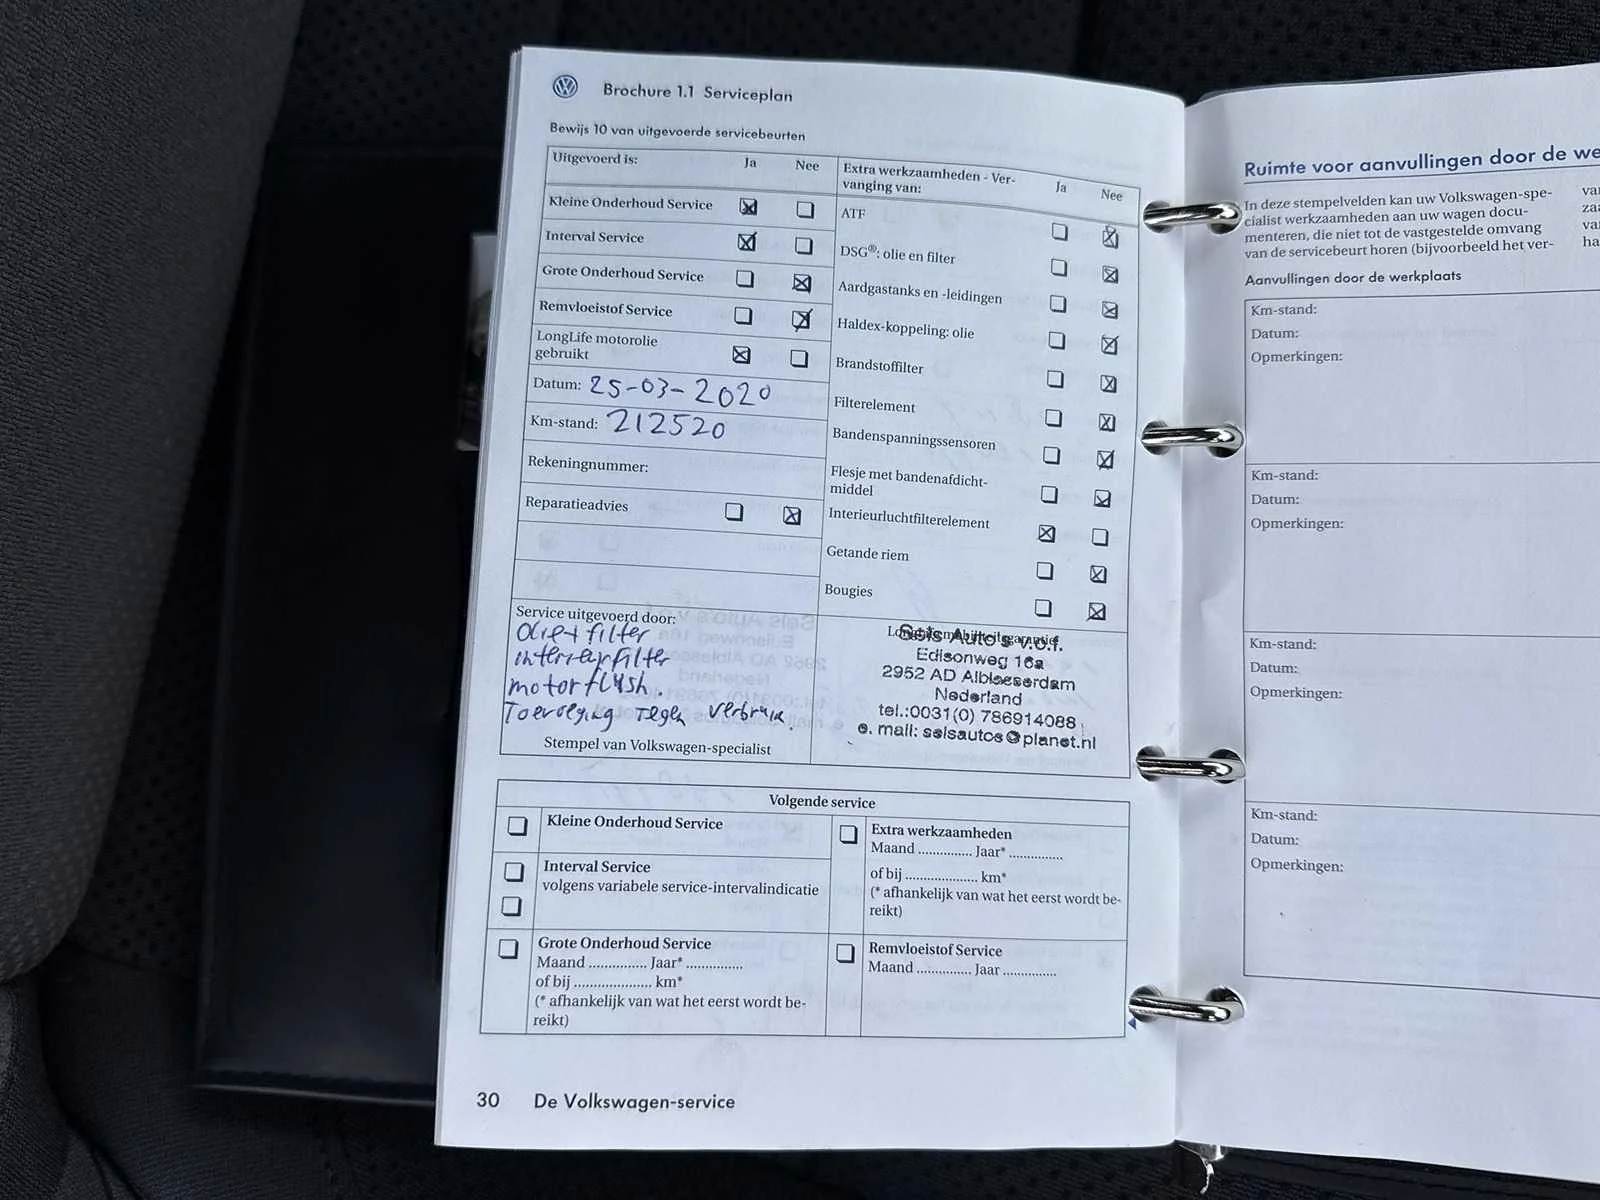 Brochure 1.1 Serviceplan
Bewijs 10 van uitgevoerde servicebeurten
Uitgevoerd is: Ja Nee
Kleine Onderhoud Service
Interval Service
Grote Onderhoud Service
Remvloeistof Service
LongLife motorolie
gebruikt
Datum: 25-03-2020
Km-stand: 212520
Rekeningnummer:
Reparatieadvies
Service uitgevoerd door:
Olie+filter
interieurfilter
motorflush.
Toevoeging tegen verbruik.
Stempel van Volkswagen-specialist
Extra werkzaamheden - Ver-
vanging van: Ja Nee
ATF
DSG®: olie en filter
Aardgastanks en -leidingen
Haldex-koppeling: olie
Brandstoffilter
Filterelement
Bandenspanningssensoren
Flesje met bandenafdicht-
middel
Interieurluchtfilterelement
Getande riem
Bougies
Sels Auto's v.o.f.
Edisonweg 16a
2952 AD Alblasserdam
Nederland
tel.:0031(0) 786914088
e. mail: selsautos@planet.nl
Volgende service
Kleine Onderhoud Service
Interval Service
volgens variabele service-intervalindicatie
Grote Onderhoud Service
Maand ............... Jaar* ...............
of bij .................... km*
(* afhankelijk van wat het eerst wordt be-
reikt)
Extra werkzaamheden
Maand .............. Jaar* ..............
of bij ................... km*
(* afhankelijk van wat het eerst wordt be-
reikt)
Remvloeistof Service
Maand .............. Jaar ..............
30 De Volkswagen-service
Ruimte voor aanvullingen door de we
In deze stempelvelden kan uw Volkswagen-spe-
cialist werkzaamheden aan uw wagen docu-
menteren, die niet tot de vastgestelde omvang
van de servicebeurt horen (bijvoorbeeld het ver-
Aanvullingen door de werkplaats
Km-stand:
Datum:
Opmerkingen:
Km-stand:
Datum:
Opmerkingen:
Km-stand:
Datum:
Opmerkingen:
Km-stand:
Datum:
Opmerkingen: